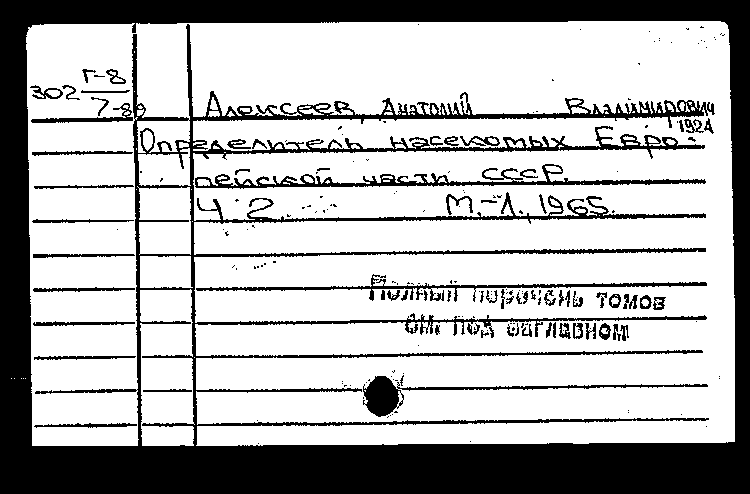 302 Г-8
7-89
Алексеев, Анатолий Владимирович
1924
Определитель насекомых Евро-
пейской части СССР.
Ч. 2. М.-Л., 1965.
Полный перечень томов
см. под заглавием